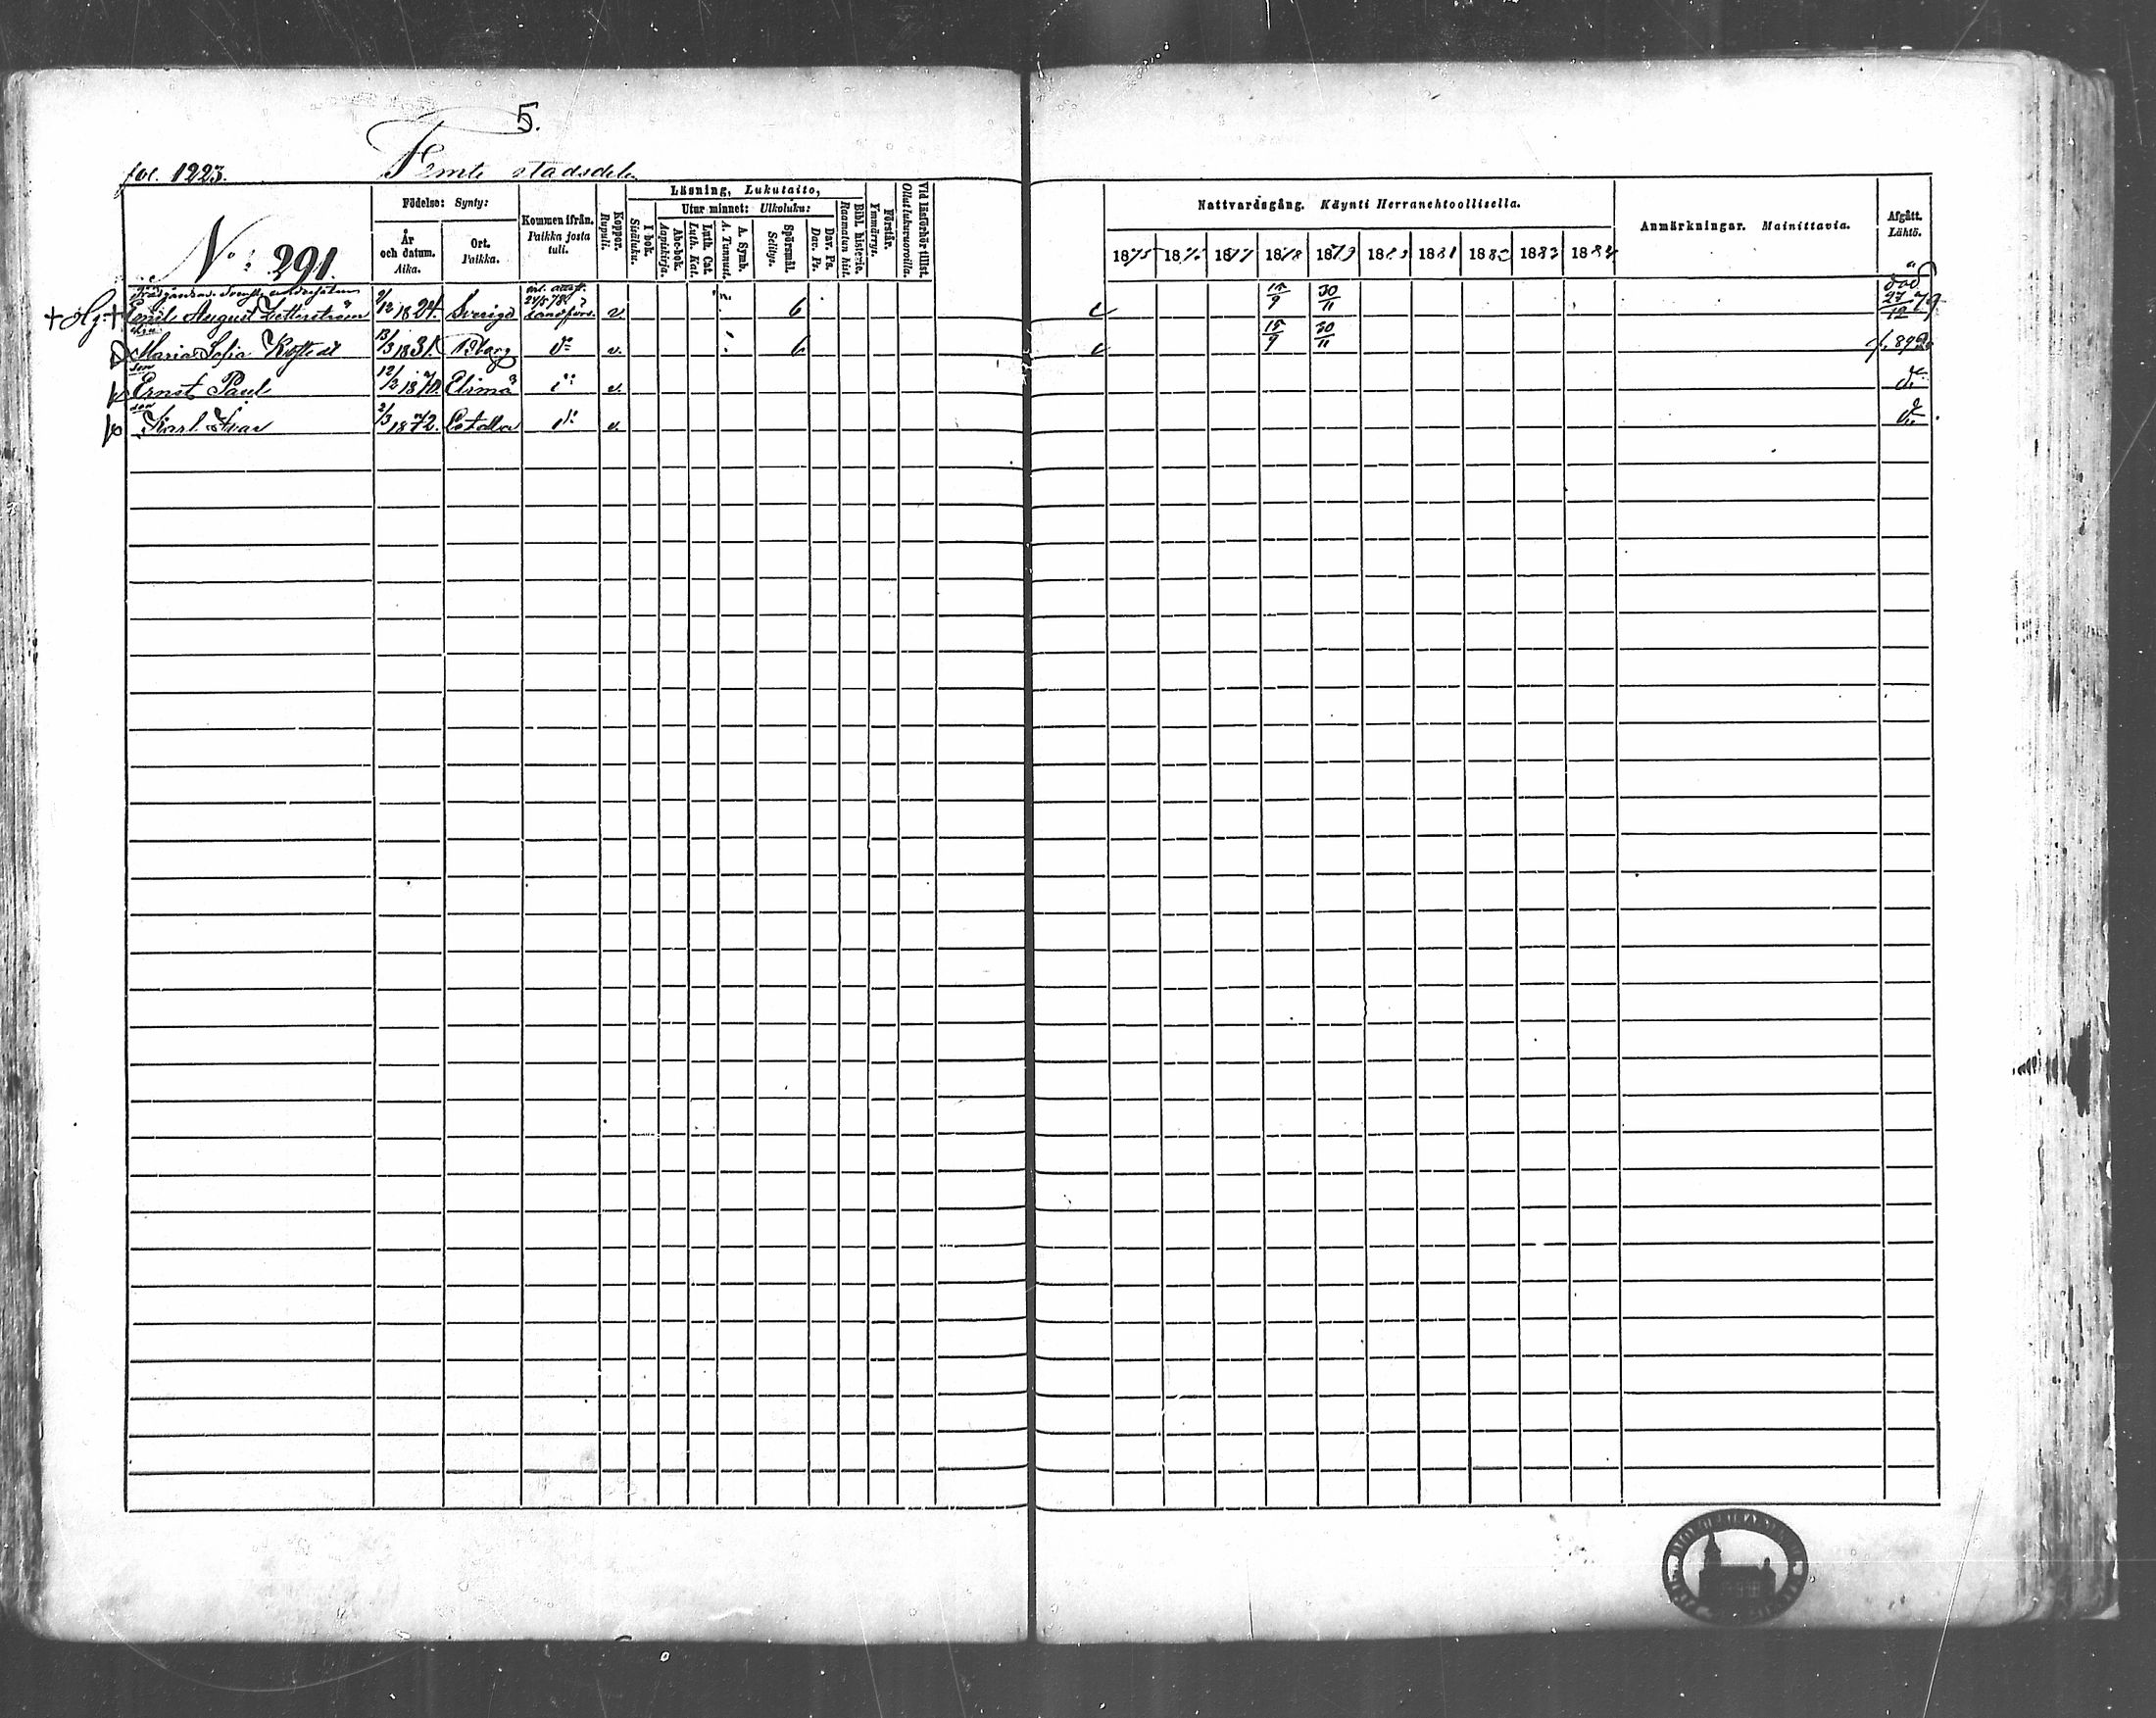 5.
fol. 1223. Femte stadsdelen
Födelse: Synty:
Läsning, Lukutaito,
Utur minnet: Ulkoluku:
N:o 291.
År och datum. Aika.
Ort. Paikka.
Kommen ifrån. Paikka josta tuli.
Koppor. Rupuli.
I bok. Sisäluku.
Abc-bok. Aapiskirja.
Luth. Cat. Luth. Kat.
A. Symb. A. Tunnust.
Spörsmål. Selitys.
Dav. Ps. Dav. Ps.
Bibl. historie. Raamatun hist.
Förstår. Ymmärrys.
Vid läsförhör tillst. Ollut lukuvuoroilla.
Nattvardsgång. Käynti Herranehtoollisella.
1875 1876 1877 1878 1879 1880 1881 1882 1883 1884
Anmärkningar. Mainittavia.
Afgått. Lähtö.
Emil August Zetterström 2/12 1824. Sverige v. 6 15/9 30/11 död 27/12 79
Maria Sofia 13/3 1831. Borg do v. 6 15/9 30/11
son
Ernst Paul 12/2 1870. Elimä v. do
son
Karl Ivar 2/3 1872. do v. do